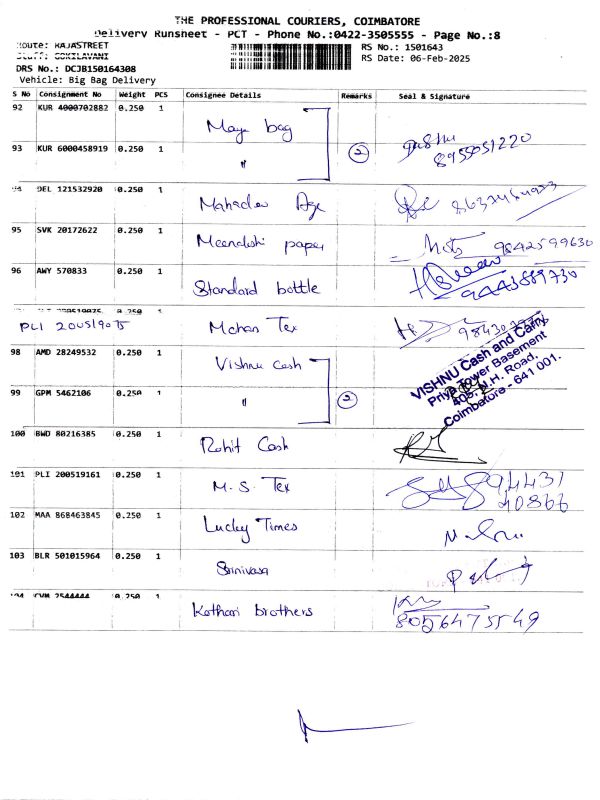 THE PROFESSIONAL COURIERS, COIMBATORE
Delivery Runsheet - PCT - Phone No.:0422-3505555 - Page No.:8
Route: RAJASTREET
RS No.: 1501643
Staff: GOKILAVANI
RS Date: 06-Feb-2025
DRS No.: DCJB150164308
Vehicle: Big Bag Delivery
S No Consignment No Weight PCS Consignee Details Remarks Seal & Signature
92 KUR 4000702882 0.250 1 Maya bag
8955051220
93 KUR 6000458919 0.250 1 " 2
94 DEL 121532920 0.250 1 Mahadev Age
95 SVK 20172622 0.250 1 Meenakshi paper 9842599630
96 AWY 570833 0.250 1 Standard bottle 9443889730
0.250 1
PLI 200519075 Mohan Tex
98 AMD 28249532 0.250 1 Vishnu Cash
VISHNU Cash and Carry
Priya Tower Basement
405, N.H. Road,
Coimbatore - 641 001.
99 GPM 5462106 0.250 1 " 2
100 BWD 80216385 0.250 1 Rohit Cash
101 PLI 200519161 0.250 1 M. S. Tex 94431
40866
102 MAA 868463845 0.250 1 Lucky Times
103 BLR 501015964 0.250 1 Srinivasa
104 CVM 2544444 0.250 1 Kothari brothers
8056475549